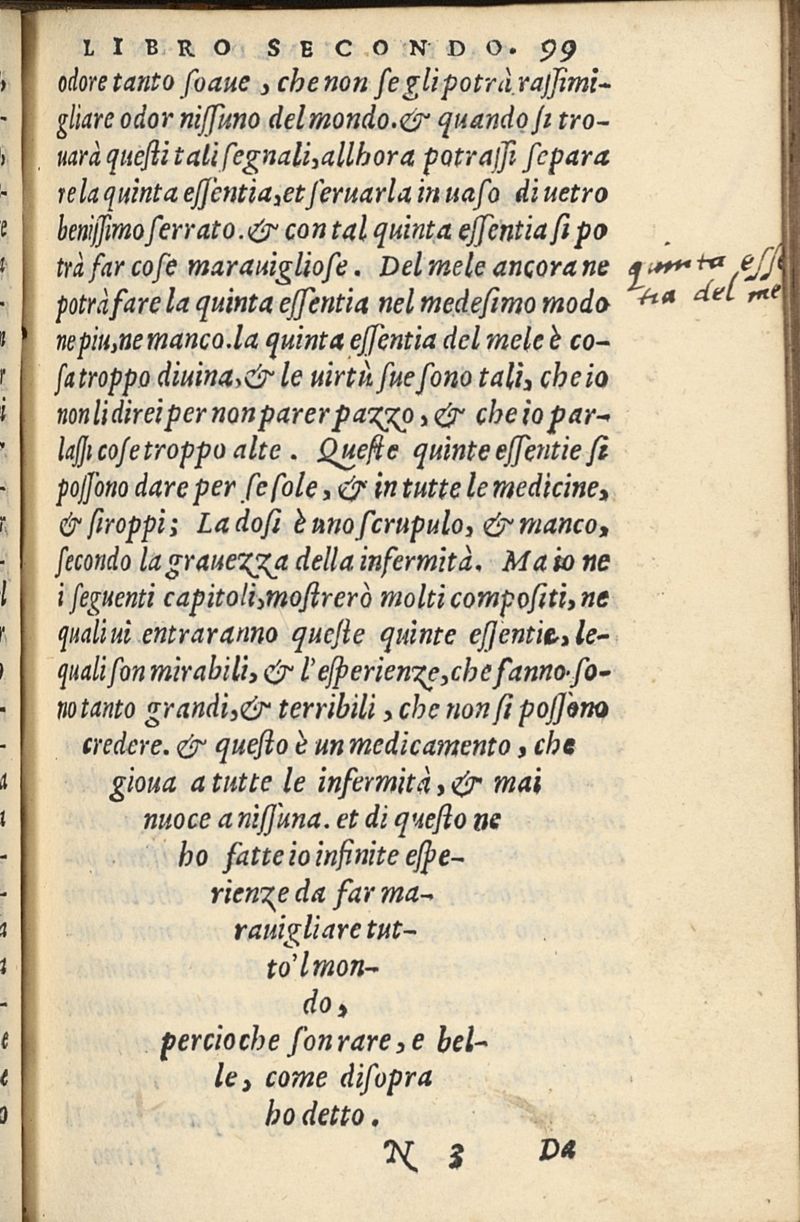 LIBRO SECONDO. 99
odore tanto ſoaue, che non ſe gli potrà raſſimi-
gliare odor niſſuno del mondo. & quando ſi tro-
uarà queſti tali ſegnali, allhora potraſſi ſepara
re la quinta eſſentia, et ſeruarla in uaſo di uetro
beniſſimo ſerrato. & con tal quinta eſſentia ſi po
trà far coſe marauiglioſe. Del mele ancora ne
quinta eſſ
potrà fare la quinta eſſentia nel medeſimo modo
tia del me
ne piu, ne manco. la quinta eſſentia del mele è co-
ſa troppo diuina, & le uirtù ſue ſono tali, che io
non li direi per non parer pazzo, & che io par-
laſſi coſe troppo alte. Queſte quinte eſſentie ſi
poſſono dare per ſe ſole, & in tutte le medicine,
& ſiroppi; La doſi è uno ſcrupulo, & manco,
ſecondo la grauezza della infermità. Ma io ne
i ſeguenti capitoli, moſtrerò molti compoſiti, ne
quali ui entraranno queſte quinte eſſentie, le-
quali ſon mirabili, & l'eſperienze, che fanno ſo-
no tanto grandi, & terribili, che non ſi poſſono
credere. & queſto è un medicamento, che
gioua a tutte le infermità, & mai
nuoce a niſſuna. et di queſto ne
ho fatte io infinite eſpe-
rienze da far ma-
rauigliare tut-
to'l mon-
do,
percioche ſon rare, e bel-
le, come diſopra
ho detto.
N 3 Da